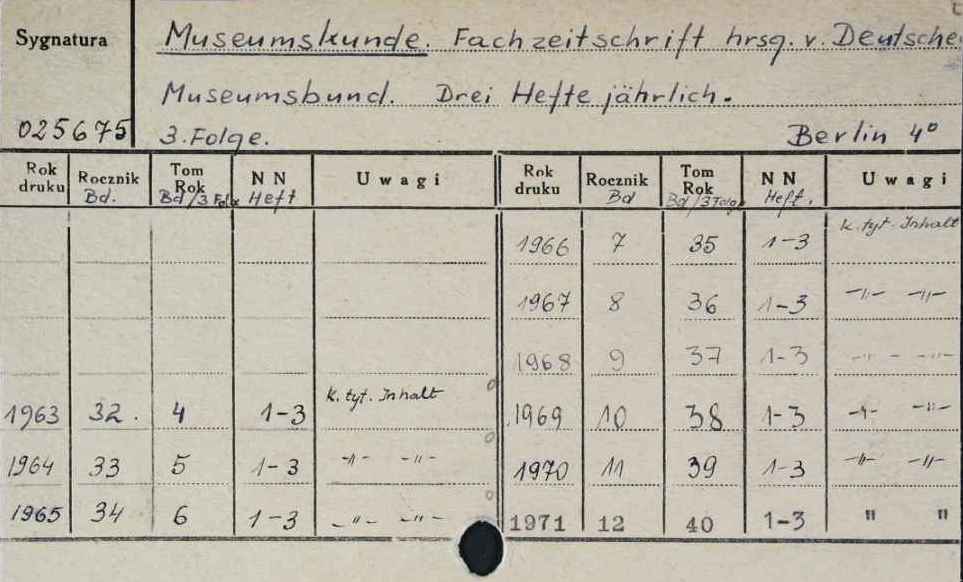 Sygnatura
Museumskunde. Fachzeitschrift hrsg. v. Deutsche
Museumsbund. Drei Hefte jährlich.
025675 3. Folge. Berlin 4°
Rok druku Rocznik Bd. Tom Rok Bd/3 Folge NN Heft Uwagi Rok druku Rocznik Bd Tom Rok Bd/3 Folge NN Heft. Uwagi
1966 7 35 1-3 k. tyt. Inhalt
1967 8 36 1-3 -"- -"-
1968 9 37 1-3 -"- -"-
1963 32. 4 1-3 k. tyt. Inhalt 1969 10 38 1-3 -"- -"-
1964 33 5 1-3 -"- -"- 1970 11 39 1-3 -"- -"-
1965 34 6 1-3 -"- -"- 1971 12 40 1-3 " "